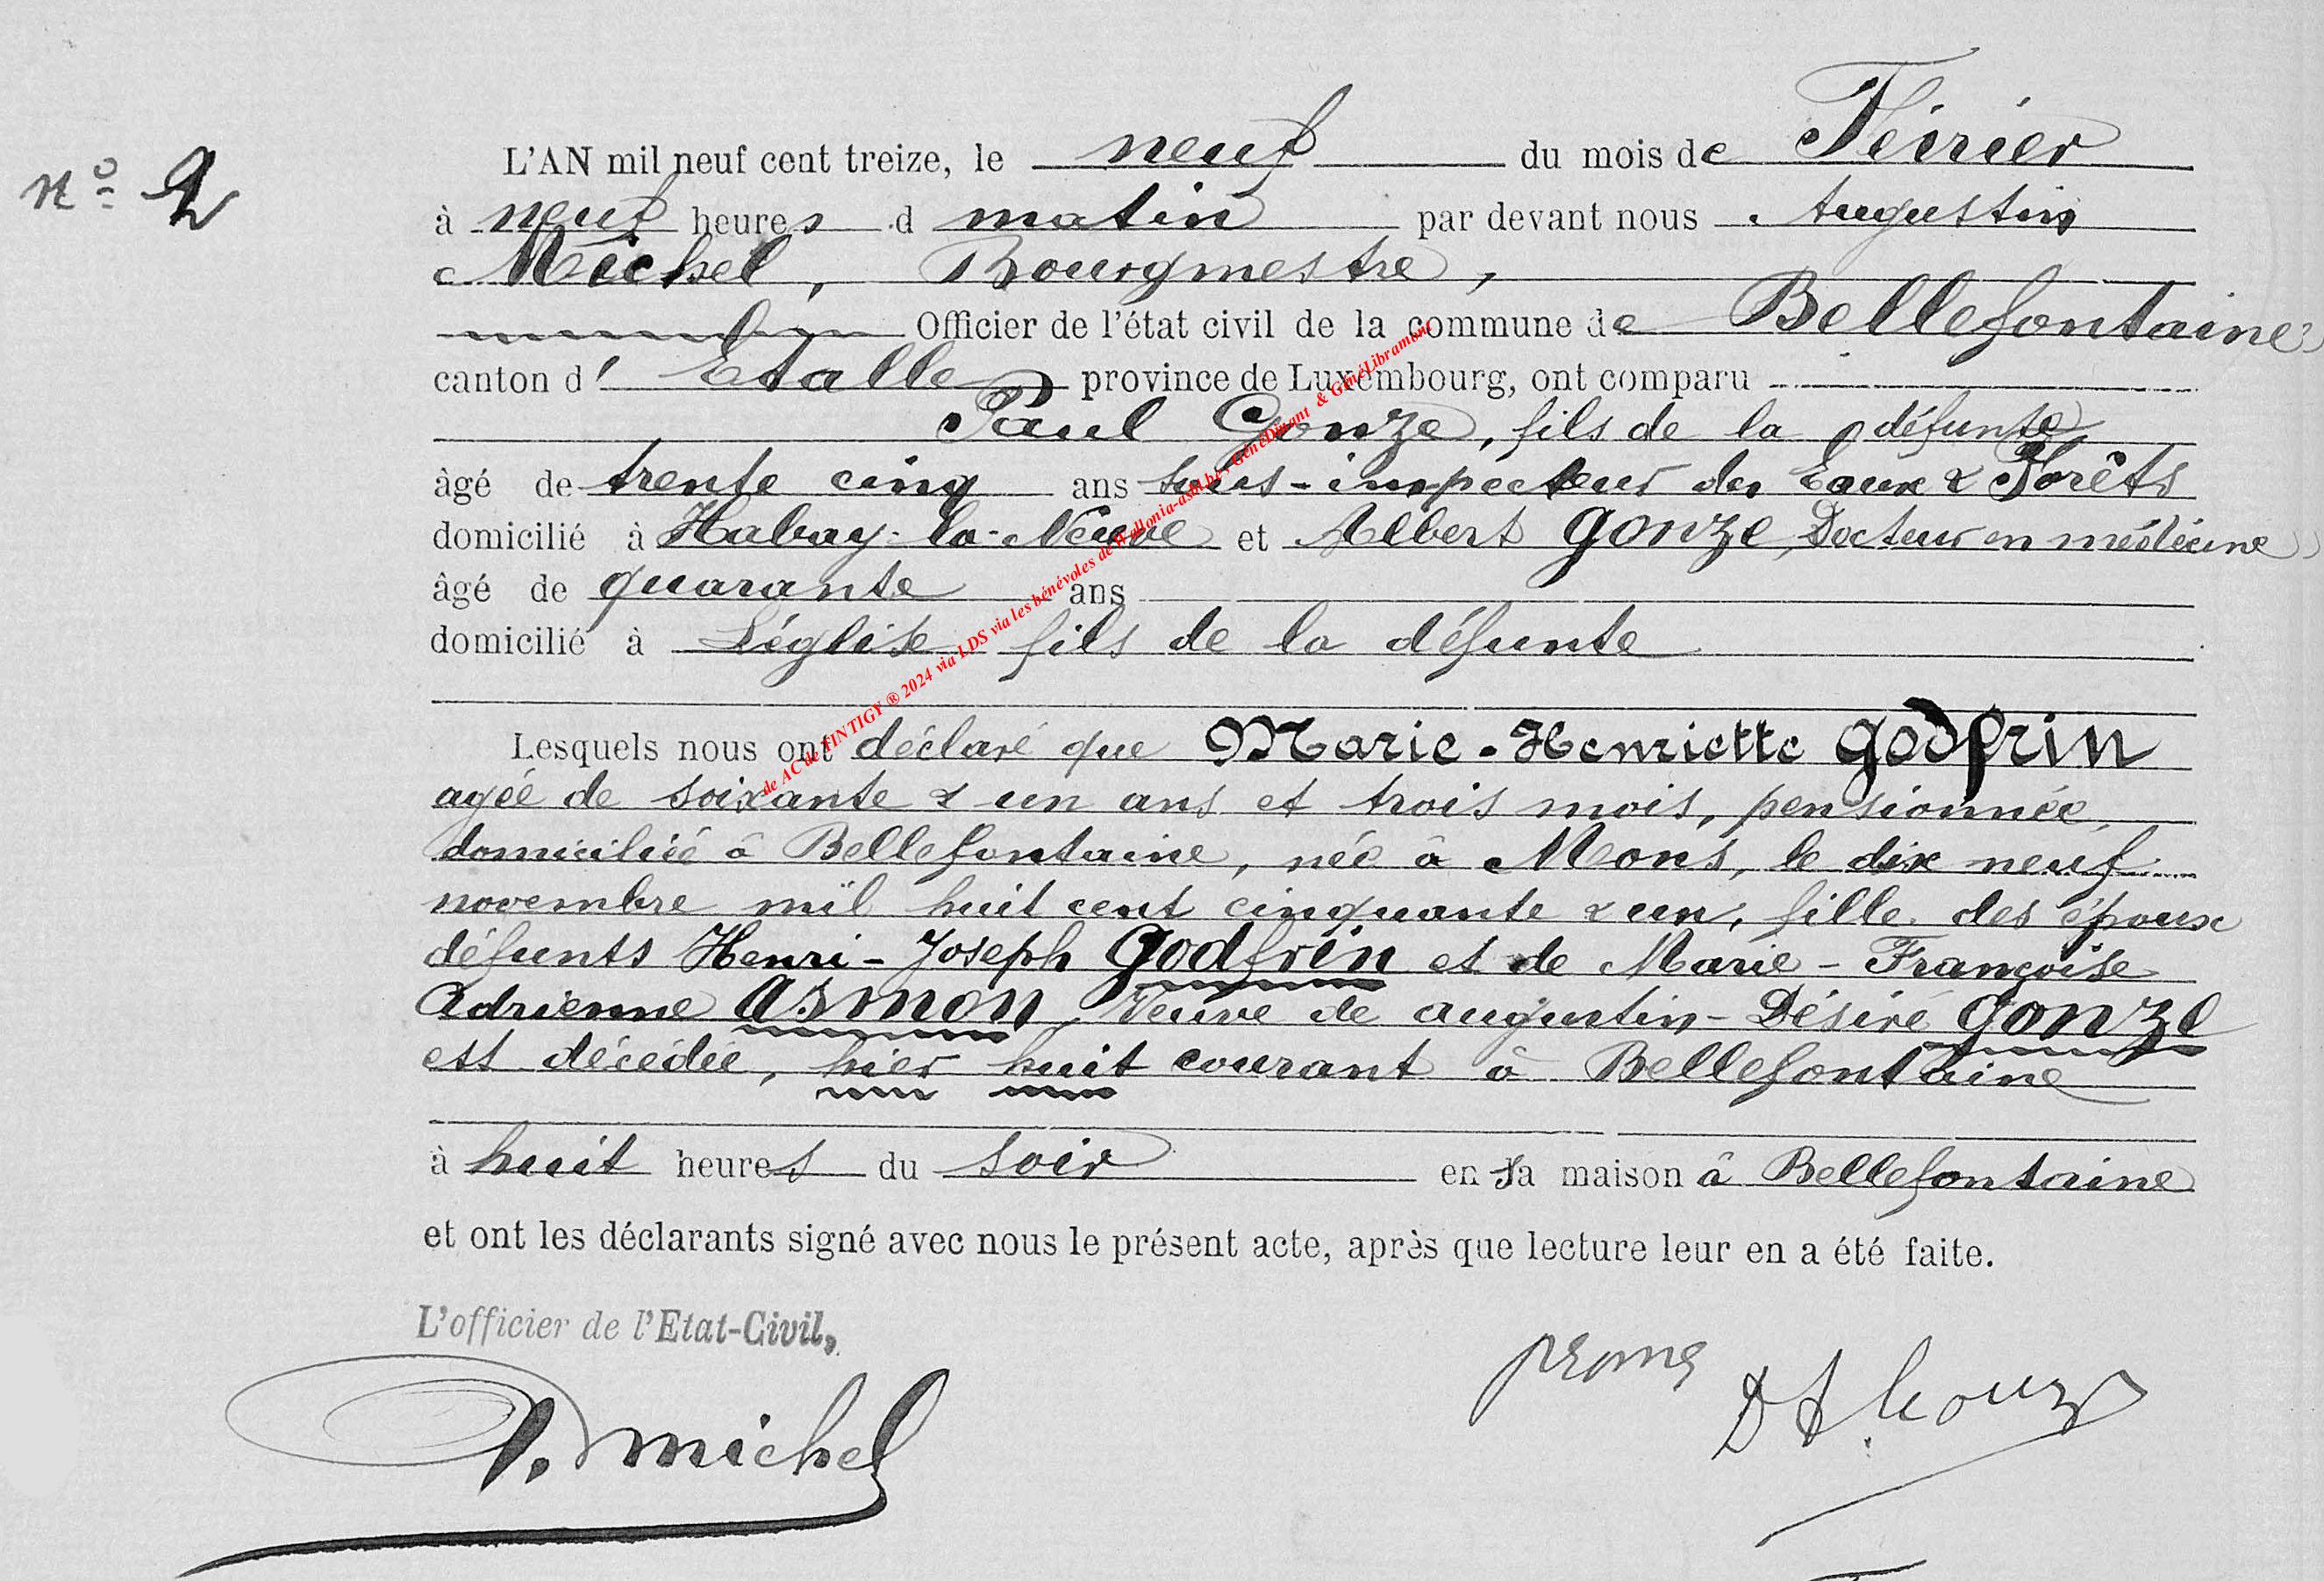 N° 2
L'AN mil neuf cent treize, le neuf du mois de Février
à neuf heures d matin par devant nous Augustin
Michel, Bourgmestre,
Officier de l'état civil de la commune de Bellefontaine
canton d' Etalle province de Luxembourg, ont comparu
Paul Gonze, fils de la défunte
âgé de trente cinq ans sous-inspecteur des Eaux & Forêts
domicilié à Habay-la-Neuve et Albert Gonze, Docteur en médécine
âgé de quarante ans
domicilié à Léglise fils de la défunte
Lesquels nous ont déclaré que Marie-Henriette Godfrin
agée de soixante & un ans et trois mois, pensionnée,
domiciliée à Bellefontaine, née à Mons, le dix neuf
novembre mil huit cent cinquante & un, fille des époux
défunts Henri-Joseph Godfrin et de Marie-Françoise
Adrienne Asmon, Veuve de Augustin-Désiré Gonze
est décédée, hier huit courant à Bellefontaine
à huit heures du soir en sa maison à Bellefontaine
et ont les déclarants signé avec nous le présent acte, après que lecture leur en a été faite.
L'officier de l'Etat-Civil,
A. Michel
de AC de TINTIGY ® 2024 via LDS via les bénévoles de Wallonia-asbl.be, GénéDinant & GénéLibramont